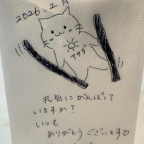 2026.2月
元気にがんばって
いますか?
いつも
ありがとうございます